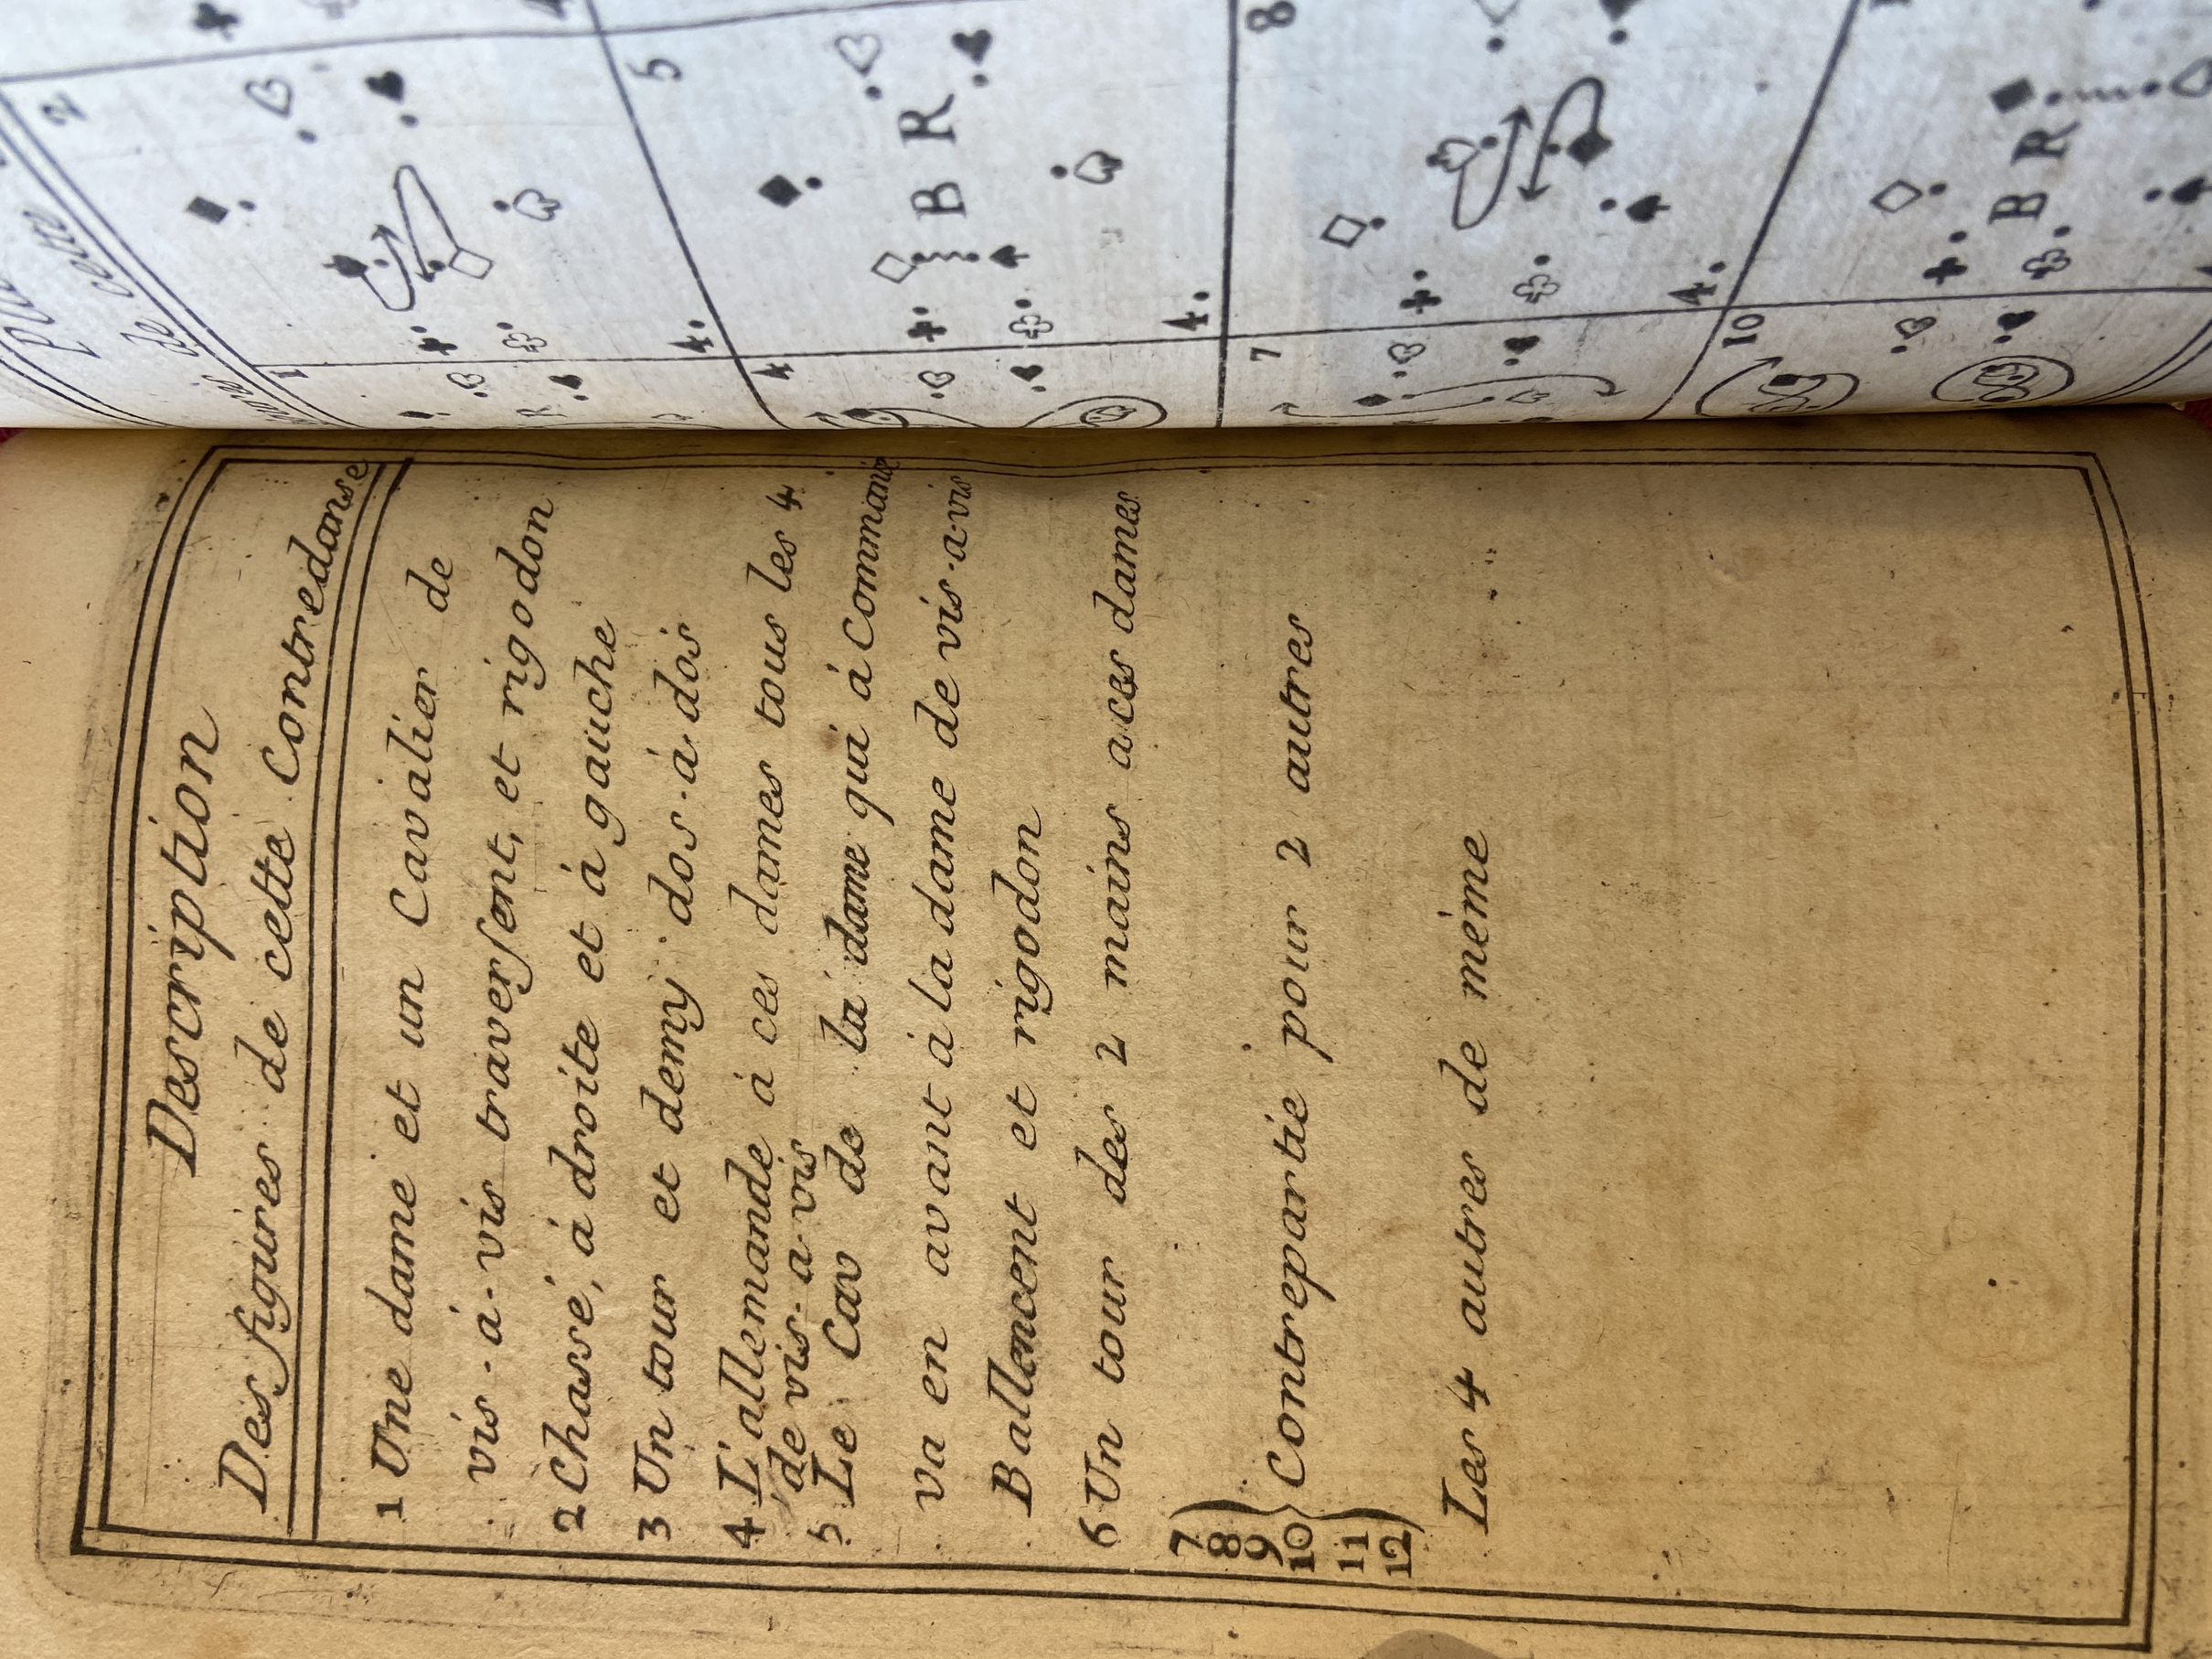 Description
Des figures de cette Contredanse
1 Une dame et un Cavalier de
vis-à-vis traversent, et rigodon
2 Chassé, à droite et à gauche
3 Un tour et demy dos-à-dos
4 L'allemande à ces dames tous les 4
de vis-a-vis
5 Le Cav de la dame qui à Commancé
va en avant à la dame de vis-a-vis
Ballencent et rigodon
6 Un tour des 2 mains a ces dames
7
8
9
10 Contrepartie pour 2 autres
11
12
Les 4 autres de même
de cette
1
2
4.
4
5
B R
4.
7
8
4.
10
B R